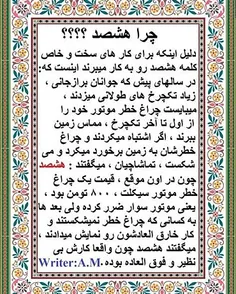 چرا هشصد ؟؟؟؟
دلیل اینکه برای کار های سخت و خاص
کلمه هشصد رو به کار میبرند اینست که:
در سالهای پیش که جوانان برازجانی ،
زیاد تکچرخ های طولانی میزدند ،
میبایست چراغ خطر موتور خود را
از اول تا آخر تکچرخ ، مماس زمین
ببرند ، اگر اشتباه میکردند و چراغ
خطرشان به زمین برخورد میکرد و می
شکست ، تماشاچیان ، میگفتند : هشصد
چون در اون موقع ، قیمت یک چراغ
خطر موتور سیکلت ، ۸۰۰ تومن بود ،
یعنی موتور سوار ضرر کرده ولی بعد ها
به کسانی که چراغ خطر نمیشکستند و
کار خارق العادشون رو نمایش میدادند ،
میگفتند هشصد چون واقعا کارش بی
نظیر و فوق العاده بوده.Writer:A.M